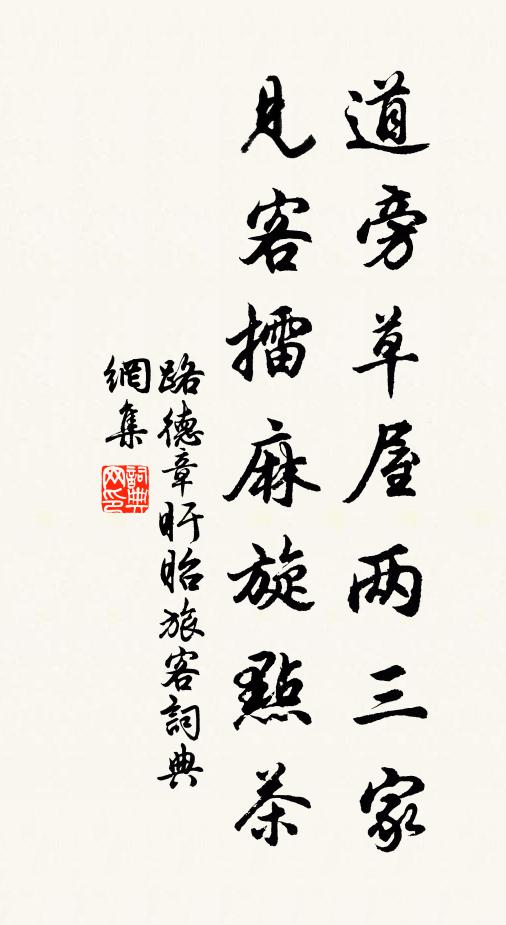 道旁草屋两三家
見客擂麻旋點茶
路德章盱眙旅客詞典
網集
詞典網印